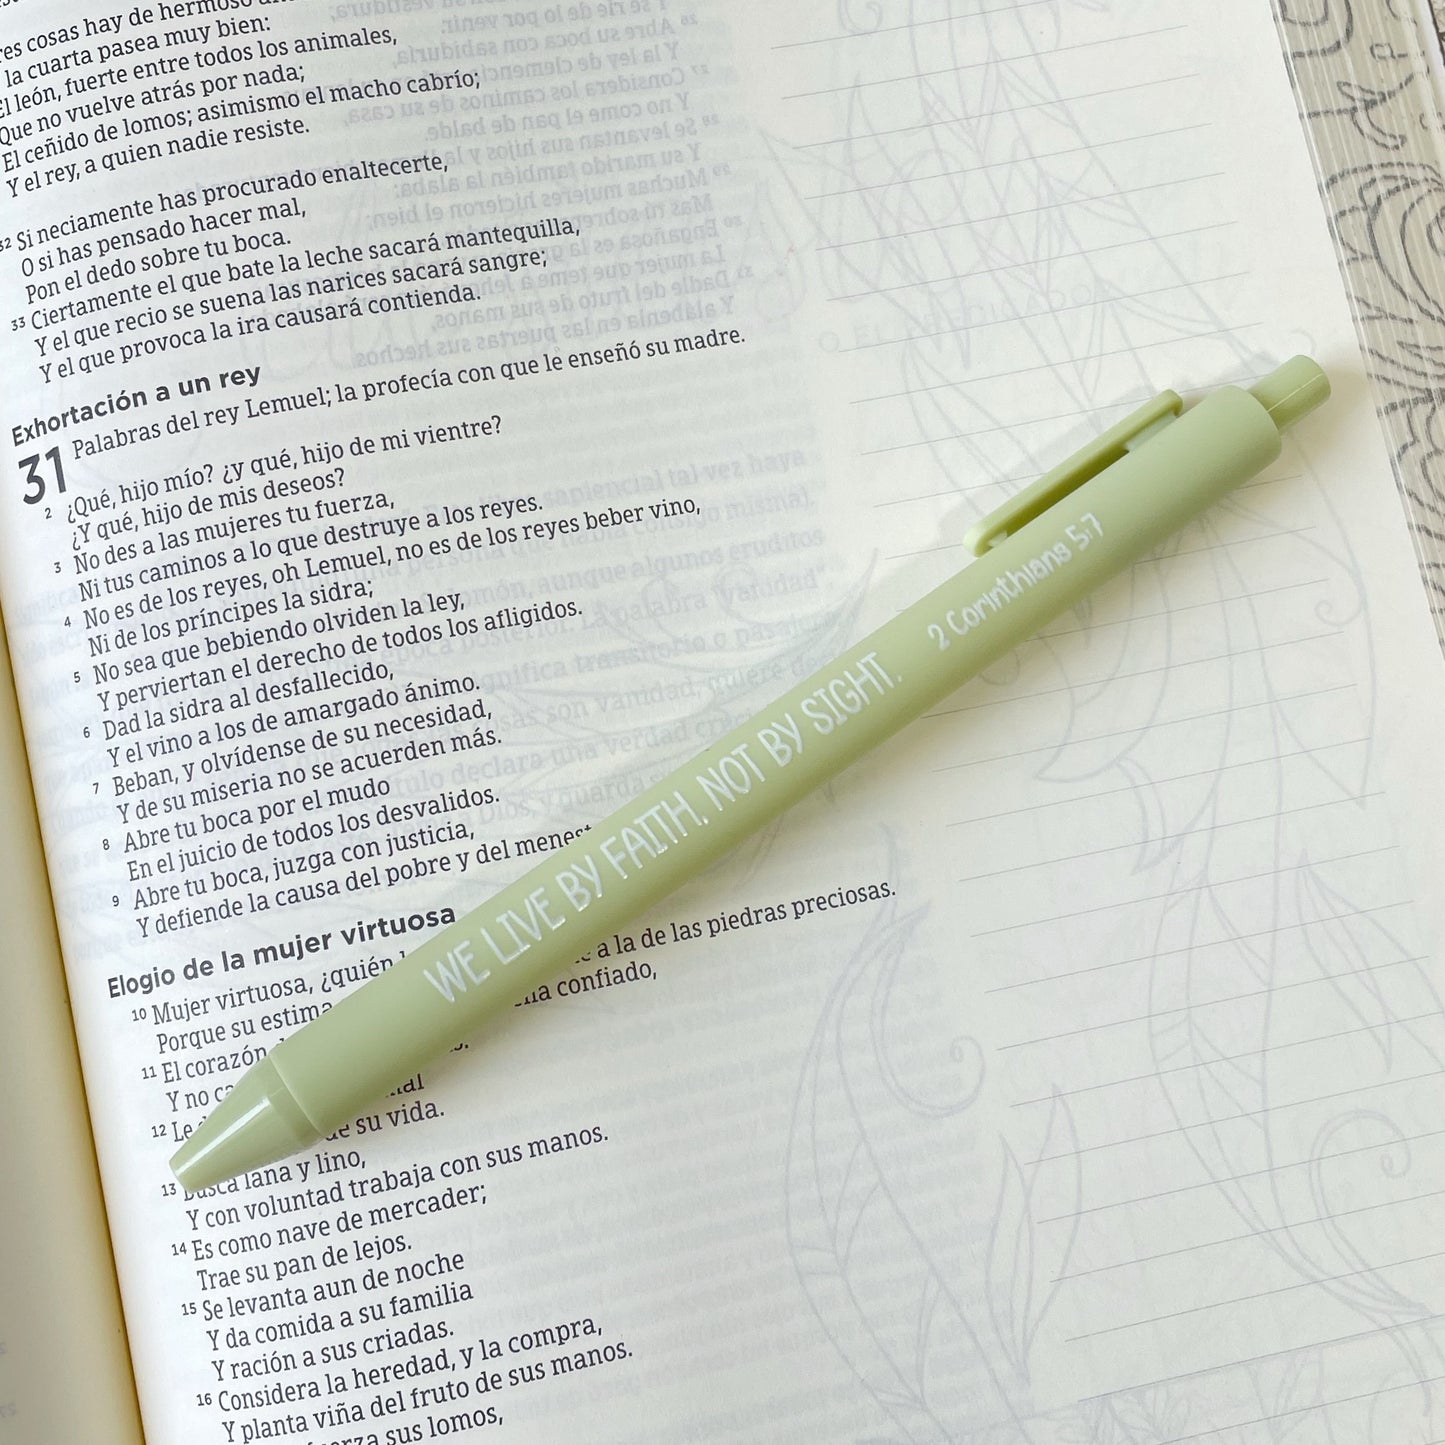 res cosas hay de hermoso
la cuarta pasea muy bien:
El león, fuerte entre todos los animales,
Que no vuelve atrás por nada;
El ceñido de lomos; asimismo el macho cabrío;
Y el rey, a quien nadie resiste.
32 Si neciamente has procurado enaltecerte,
O si has pensado hacer mal,
Pon el dedo sobre tu boca.
33 Ciertamente el que bate la leche sacará mantequilla,
Y el que recio se suena las narices sacará sangre;
Y el que provoca la ira causará contienda.
Exhortación a un rey
31 Palabras del rey Lemuel; la profecía con que le enseñó su madre.
2 ¿Qué, hijo mío? ¿y qué, hijo de mi vientre?
¿Y qué, hijo de mis deseos?
3 No des a las mujeres tu fuerza,
Ni tus caminos a lo que destruye a los reyes.
4 No es de los reyes, oh Lemuel, no es de los reyes beber vino,
Ni de los príncipes la sidra;
5 No sea que bebiendo olviden la ley,
Y perviertan el derecho de todos los afligidos.
6 Dad la sidra al desfallecido,
Y el vino a los de amargado ánimo.
7 Beban, y olvídense de su necesidad,
Y de su miseria no se acuerden más.
8 Abre tu boca por el mudo
En el juicio de todos los desvalidos.
9 Abre tu boca, juzga con justicia,
Y defiende la causa del pobre y del menest
Elogio de la mujer virtuosa
10 Mujer virtuosa, ¿quién
Porque su estima a la de las piedras preciosas.
11 El corazón confiado,
Y no
12 Le
de su vida.
13 Busca lana y lino,
Y con voluntad trabaja con sus manos.
14 Es como nave de mercader;
Trae su pan de lejos.
15 Se levanta aun de noche
Y da comida a su familia
Y ración a sus criadas.
16 Considera la heredad, y la compra,
Y planta viña del fruto de sus manos.
sus lomos,
WE LIVE BY FAITH, NOT BY SIGHT. 2 Corinthians 5:7